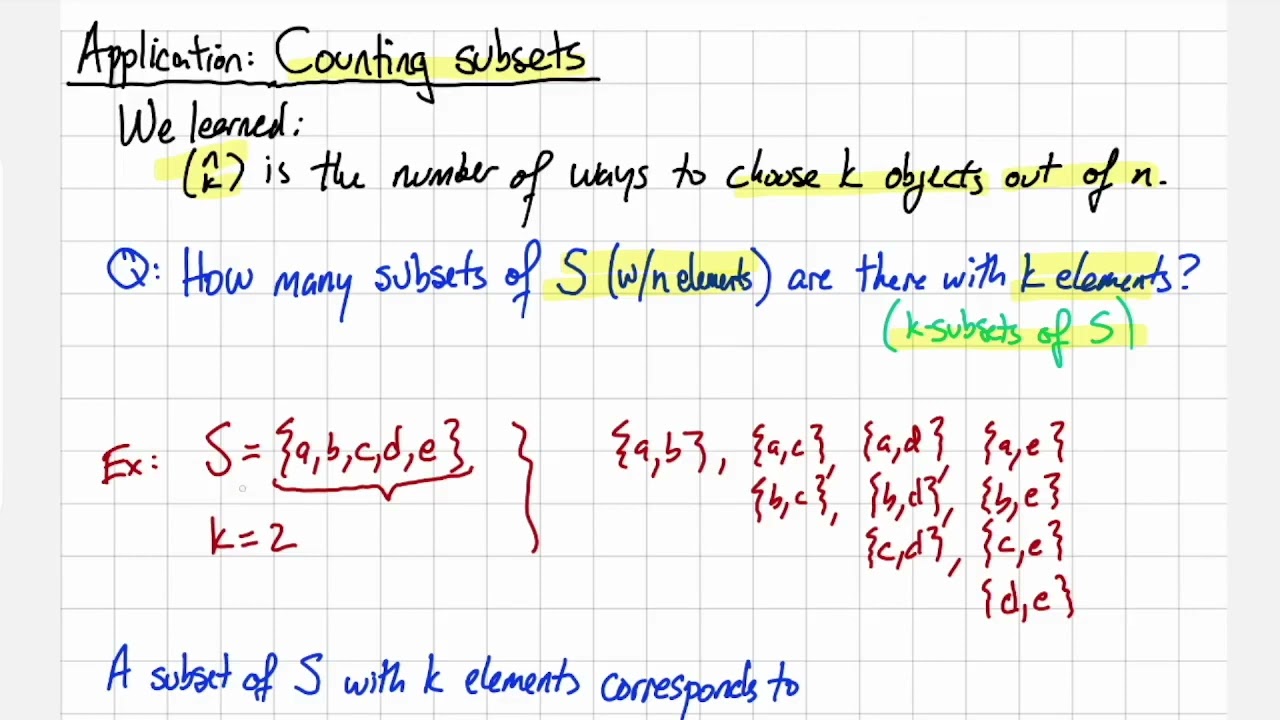 Application: Counting subsets
We learned:
(n k) is the number of ways to choose k objects out of n.
Q: How many subsets of S (w/n elements) are there with k elements?
(k-subsets of S)
Ex: S = {a,b,c,d,e} } {a,b}, {a,c}, {a,d}, {a,e}
{b,c}, {b,d}, {b,e}
k = 2 {c,d}, {c,e}
{d,e}
A subset of S with k elements corresponds to